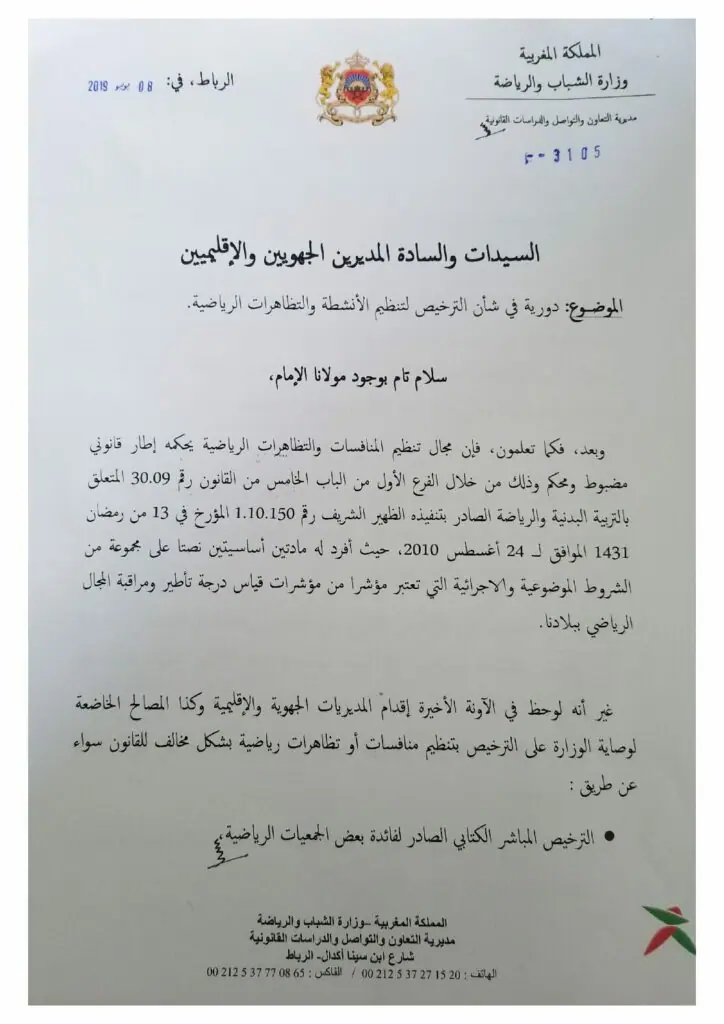 المملكة المغربية
وزارة الشباب والرياضة
مديرية التعاون والتواصل والدراسات القانونية
3105
الرباط، في: 08 يوليو 2019
السيدات والسادة المديرين الجهويين والإقليميين
الموضوع: دورية في شأن الترخيص لتنظيم الأنشطة والتظاهرات الرياضية.
سلام تام بوجود مولانا الإمام،
وبعد، فكما تعلمون، فإن مجال تنظيم المنافسات والتظاهرات الرياضية يحكمه إطار قانوني
مضبوط ومحكم وذلك من خلال الفرع الأول من الباب الخامس من القانون رقم 30.09 المتعلق
بالتربية البدنية والرياضة الصادر بتنفيذه الظهير الشريف رقم 1.10.150 المؤرخ في 13 من رمضان
1431 الموافق لـ 24 أغسطس 2010، حيث أفرد له مادتين أساسيتين نصتا على مجموعة من
الشروط الموضوعية والاجرائية التي تعتبر مؤشرا من مؤشرات قياس درجة تأطير ومراقبة المجال
الرياضي ببلادنا.
غير أنه لوحظ في الآونة الأخيرة إقدام المديريات الجهوية والإقليمية وكذا المصالح الخاضعة
لوصاية الوزارة على الترخيص بتنظيم منافسات أو تظاهرات رياضية بشكل مخالف للقانون سواء
عن طريق :
● الترخيص المباشر الكتابي الصادر لفائدة بعض الجمعيات الرياضية،
المملكة المغربية –وزارة الشباب والرياضة
مديرية التعاون والتواصل والدراسات القانونية
شارع ابن سينا أكدال- الرباط
الهاتف : 20 15 27 37 5 212 00 / الفاكس : 65 08 77 37 5 212 00